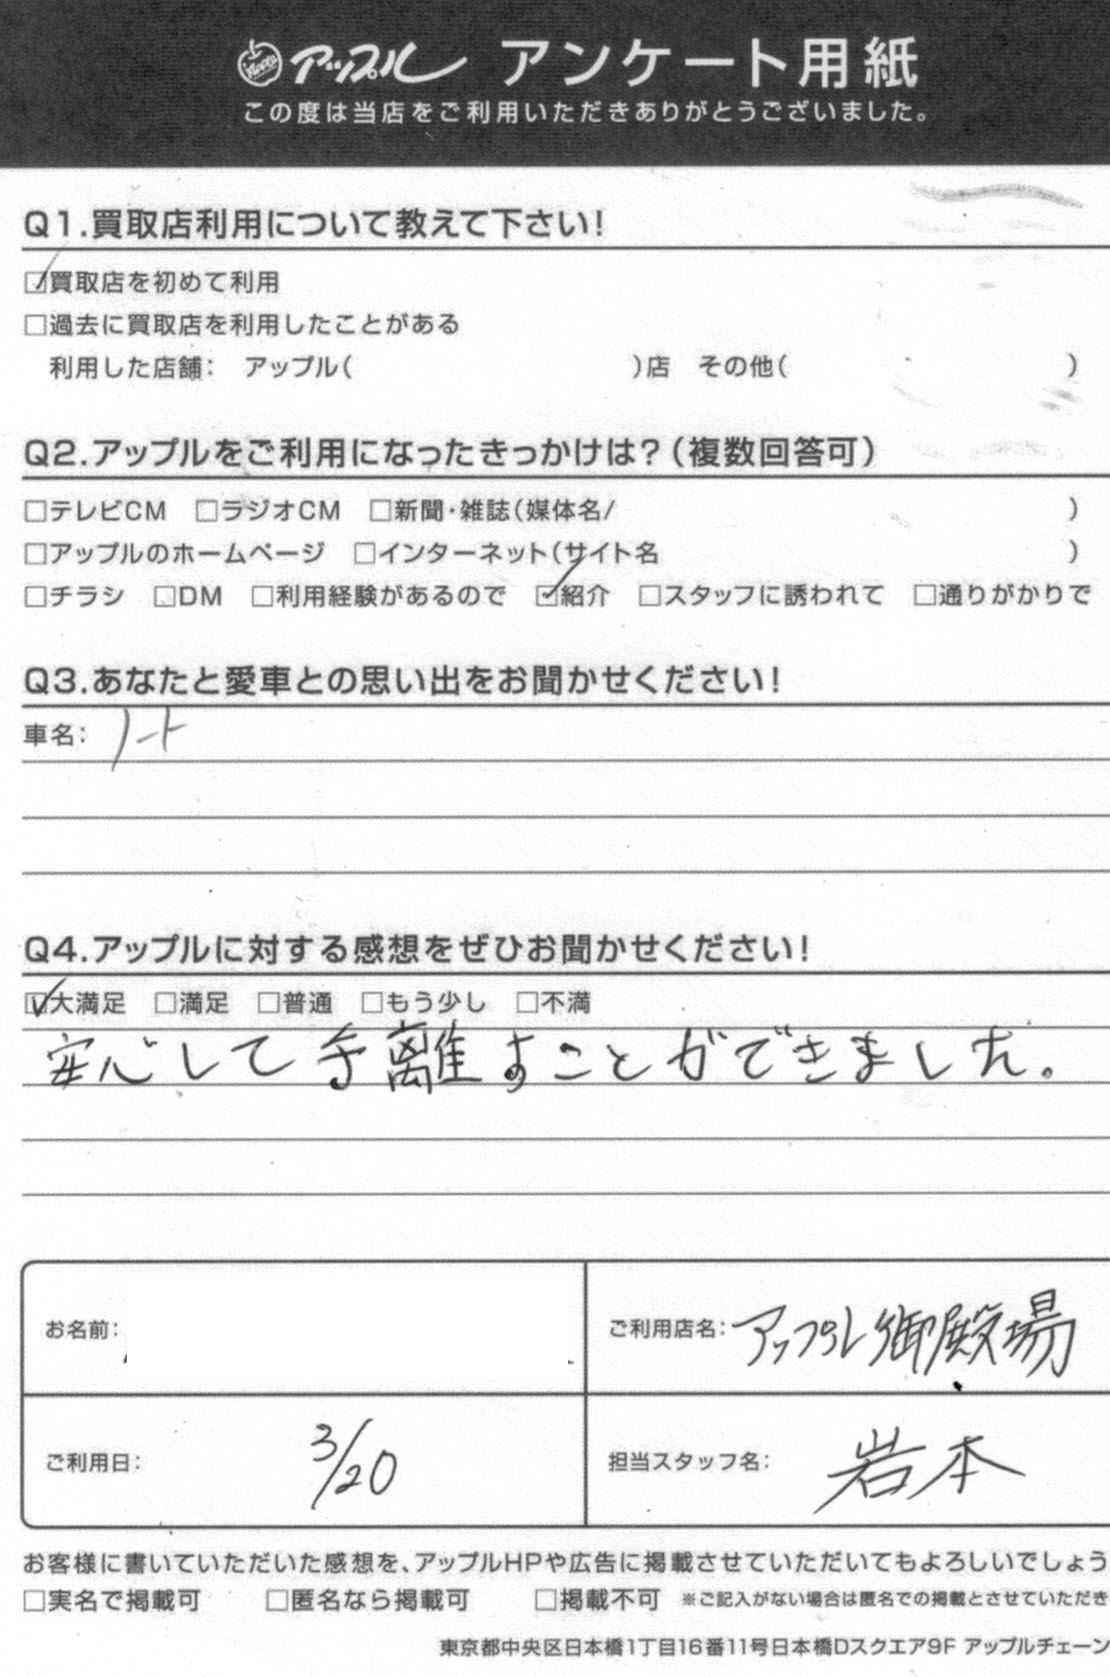 アップル アンケート用紙
この度は当店をご利用いただきありがとうございました。
Q1.買取店利用について教えて下さい!
☑買取店を初めて利用
□過去に買取店を利用したことがある
利用した店舗: アップル( )店 その他( )
Q2.アップルをご利用になったきっかけは?(複数回答可)
□テレビCM □ラジオCM □新聞・雑誌(媒体名/ )
□アップルのホームページ □インターネット(サイト名 )
□チラシ □DM □利用経験があるので ☑紹介 □スタッフに誘われて □通りがかりで
Q3.あなたと愛車との思い出をお聞かせください!
車名: ノート
Q4.アップルに対する感想をぜひお聞かせください!
☑大満足 □満足 □普通 □もう少し □不満
安心して手離すことができました。
お名前:
ご利用店名: アップル御殿場
ご利用日: 3/20
担当スタッフ名: 岩本
お客様に書いていただいた感想を、アップルHPや広告に掲載させていただいてもよろしいでしょう
□実名で掲載可 □匿名なら掲載可 □掲載不可 ※ご記入がない場合は匿名での掲載とさせていただき
東京都中央区日本橋1丁目16番11号日本橋Dスクエア9F アップルチェーン